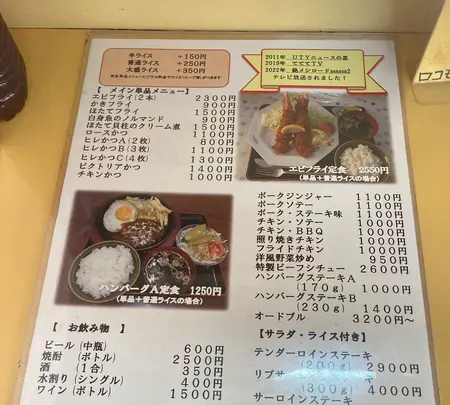 半ライス +150円
普通ライス +250円
大盛ライス +350円
【 メイン単品メニュー 】
エビフライ(2本) 2300円
かきフライ 900円
ほたてフライ 1500円
白身魚のノルマンド 900円
ほたて貝柱のクリーム煮 1500円
ロースかつ 1100円
ヒレかつA(2枚) 800円
ヒレかつB(3枚) 1100円
ヒレかつC(4枚) 1300円
ビクトリアかつ 1400円
チキンかつ 1000円
ハンバーグA定食 1250円
(単品+普通ライスの場合)
【 お飲み物 】
ビール(中瓶) 600円
焼酎(ボトル) 2500円
酒(1合) 350円
水割り(シングル) 400円
ワイン(ボトル) 1500円
2011年 UTYニュースの星
2019年 てててTV
2022年 絶メシロードseason2
テレビ放送されました!
エビフライ定食 2550円
(単品+普通ライスの場合)
ポークジンジャー 1100円
ポークソテー 1100円
ポーク・ステーキ味 1100円
チキン・ソテー 1000円
チキン・BBQ 1000円
照り焼きチキン 1000円
フライドチキン 1000円
洋風野菜炒め 950円
特製ビーフシチュー 2600円
ハンバーグステーキA
(170g) 1000円
ハンバーグステーキB
(230g) 1400円
オードブル 3200円~
【サラダ・ライス付き】
テンダーロインステーキ
(200g) 2900円
リブサ
(300g) 4000円
サーロインステーキ
ロコモ